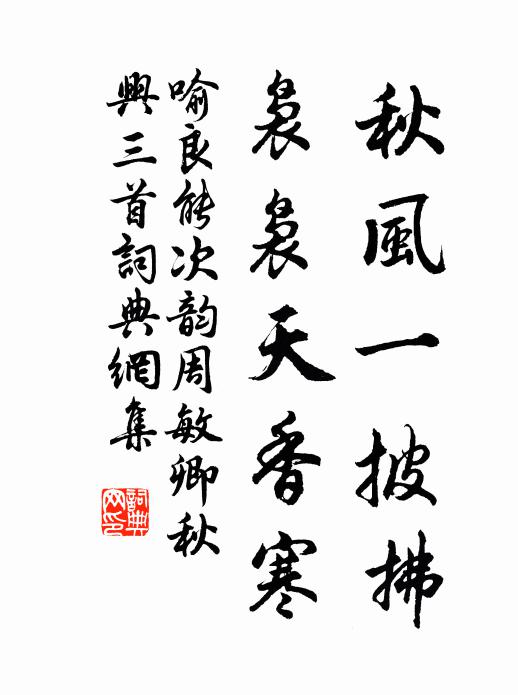 秋風一披拂
裊裊天香寒
喻良能次韵周敏卿秋
興三首詞典網集
詞典網印